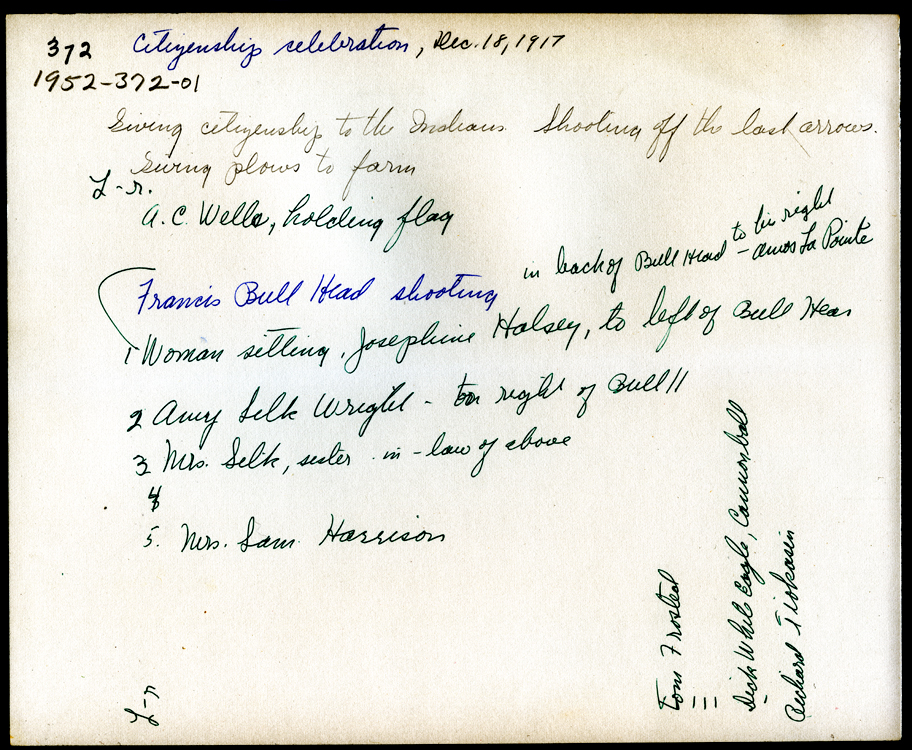 372 Citizenship celebration, Dec. 18, 1917
1952-372-01
Giving citizenship to the Indians. Shooting off the last arrows.
Giving plows to farm
L-r.
A.C. Wells, holding flag
in back of Bull Head - Amos La Pointe
to his right
Francis Bull Head shooting
1 Woman sitting, Josephine Halsey, to left of Bull Hear
2 Amy Selk Wright - to right of Bull
3 Mrs. Selk, sister-in-law of above
4
5. Mrs. Sam Harrison
L-r
Tom Frosted
Dick White Eagle, Cannonball
Richard Tiokasin